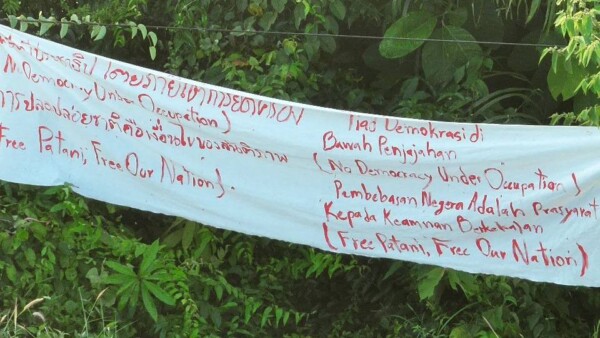 ประชาธิปไตยภายใต้การยึดครอง
No Democracy Under Occupation)
การปลดปล่อยชาติคือเงื่อนไขของสันติภาพ
Free Patani, Free Our Nation).
Demokrasi di
Bawah Penjejahan
(No Democracy Under Occupation)
Pembebasan Negera Adalah Prasyarat
Kepada Keamnan
(Free Patani, Free Our Nation)